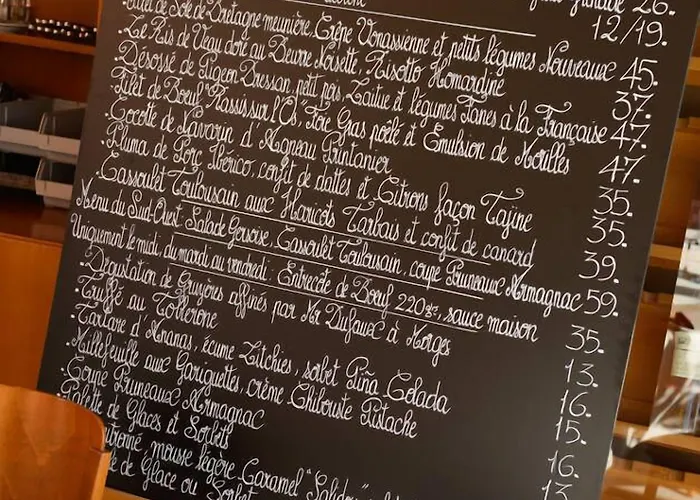 26.
12/19.
Filet de Sole de Bretagne meunière, Crêpe Vonassienne et petits légumes Nouveaux 45.
·Le Ris de Veau doré au Beurre Noisette, Risotto Homardine 37.
·Désossé de Pigeon Dressan, petit pois, Laitue et légumes Fanes à la Française 47.
·Filet de Boeuf "Rassis sur l'Os", Foie Gras poêlé et Emulsion de Morilles 47.
·Cocotte de Navarin d'Agneau Printanier 35.
·Pluma de Porc Ibérico, confit de dattes et Citrons façon Tajine 35.
·Cassoulet Toulousain aux Haricots Tarbais et confit de canard 39.
Menu du Sud-Ouest: Salade Gersoise, Cassoulet Toulousain, coupe Pruneaux Armagnac 59.
Uniquement le midi, du mardi au vendredi: Entrecôte de Boeuf 220gr, sauce maison 35.
·Dégustation de Gruyères affinés par Mr Dufaux à Morges 13.
Truffé au Tolherone 16.
·Tartare d'Ananas, écume Litchies, sorbet Piña Colada 15.
·Millefeuille aux Gariguettes, crème Chiboute Pistache 16.
·Coupe Pruneaux Armagnac 13.
·Palette de Glaces et Sorbets
mousse légère Caramel
de Glace ou Sorbet